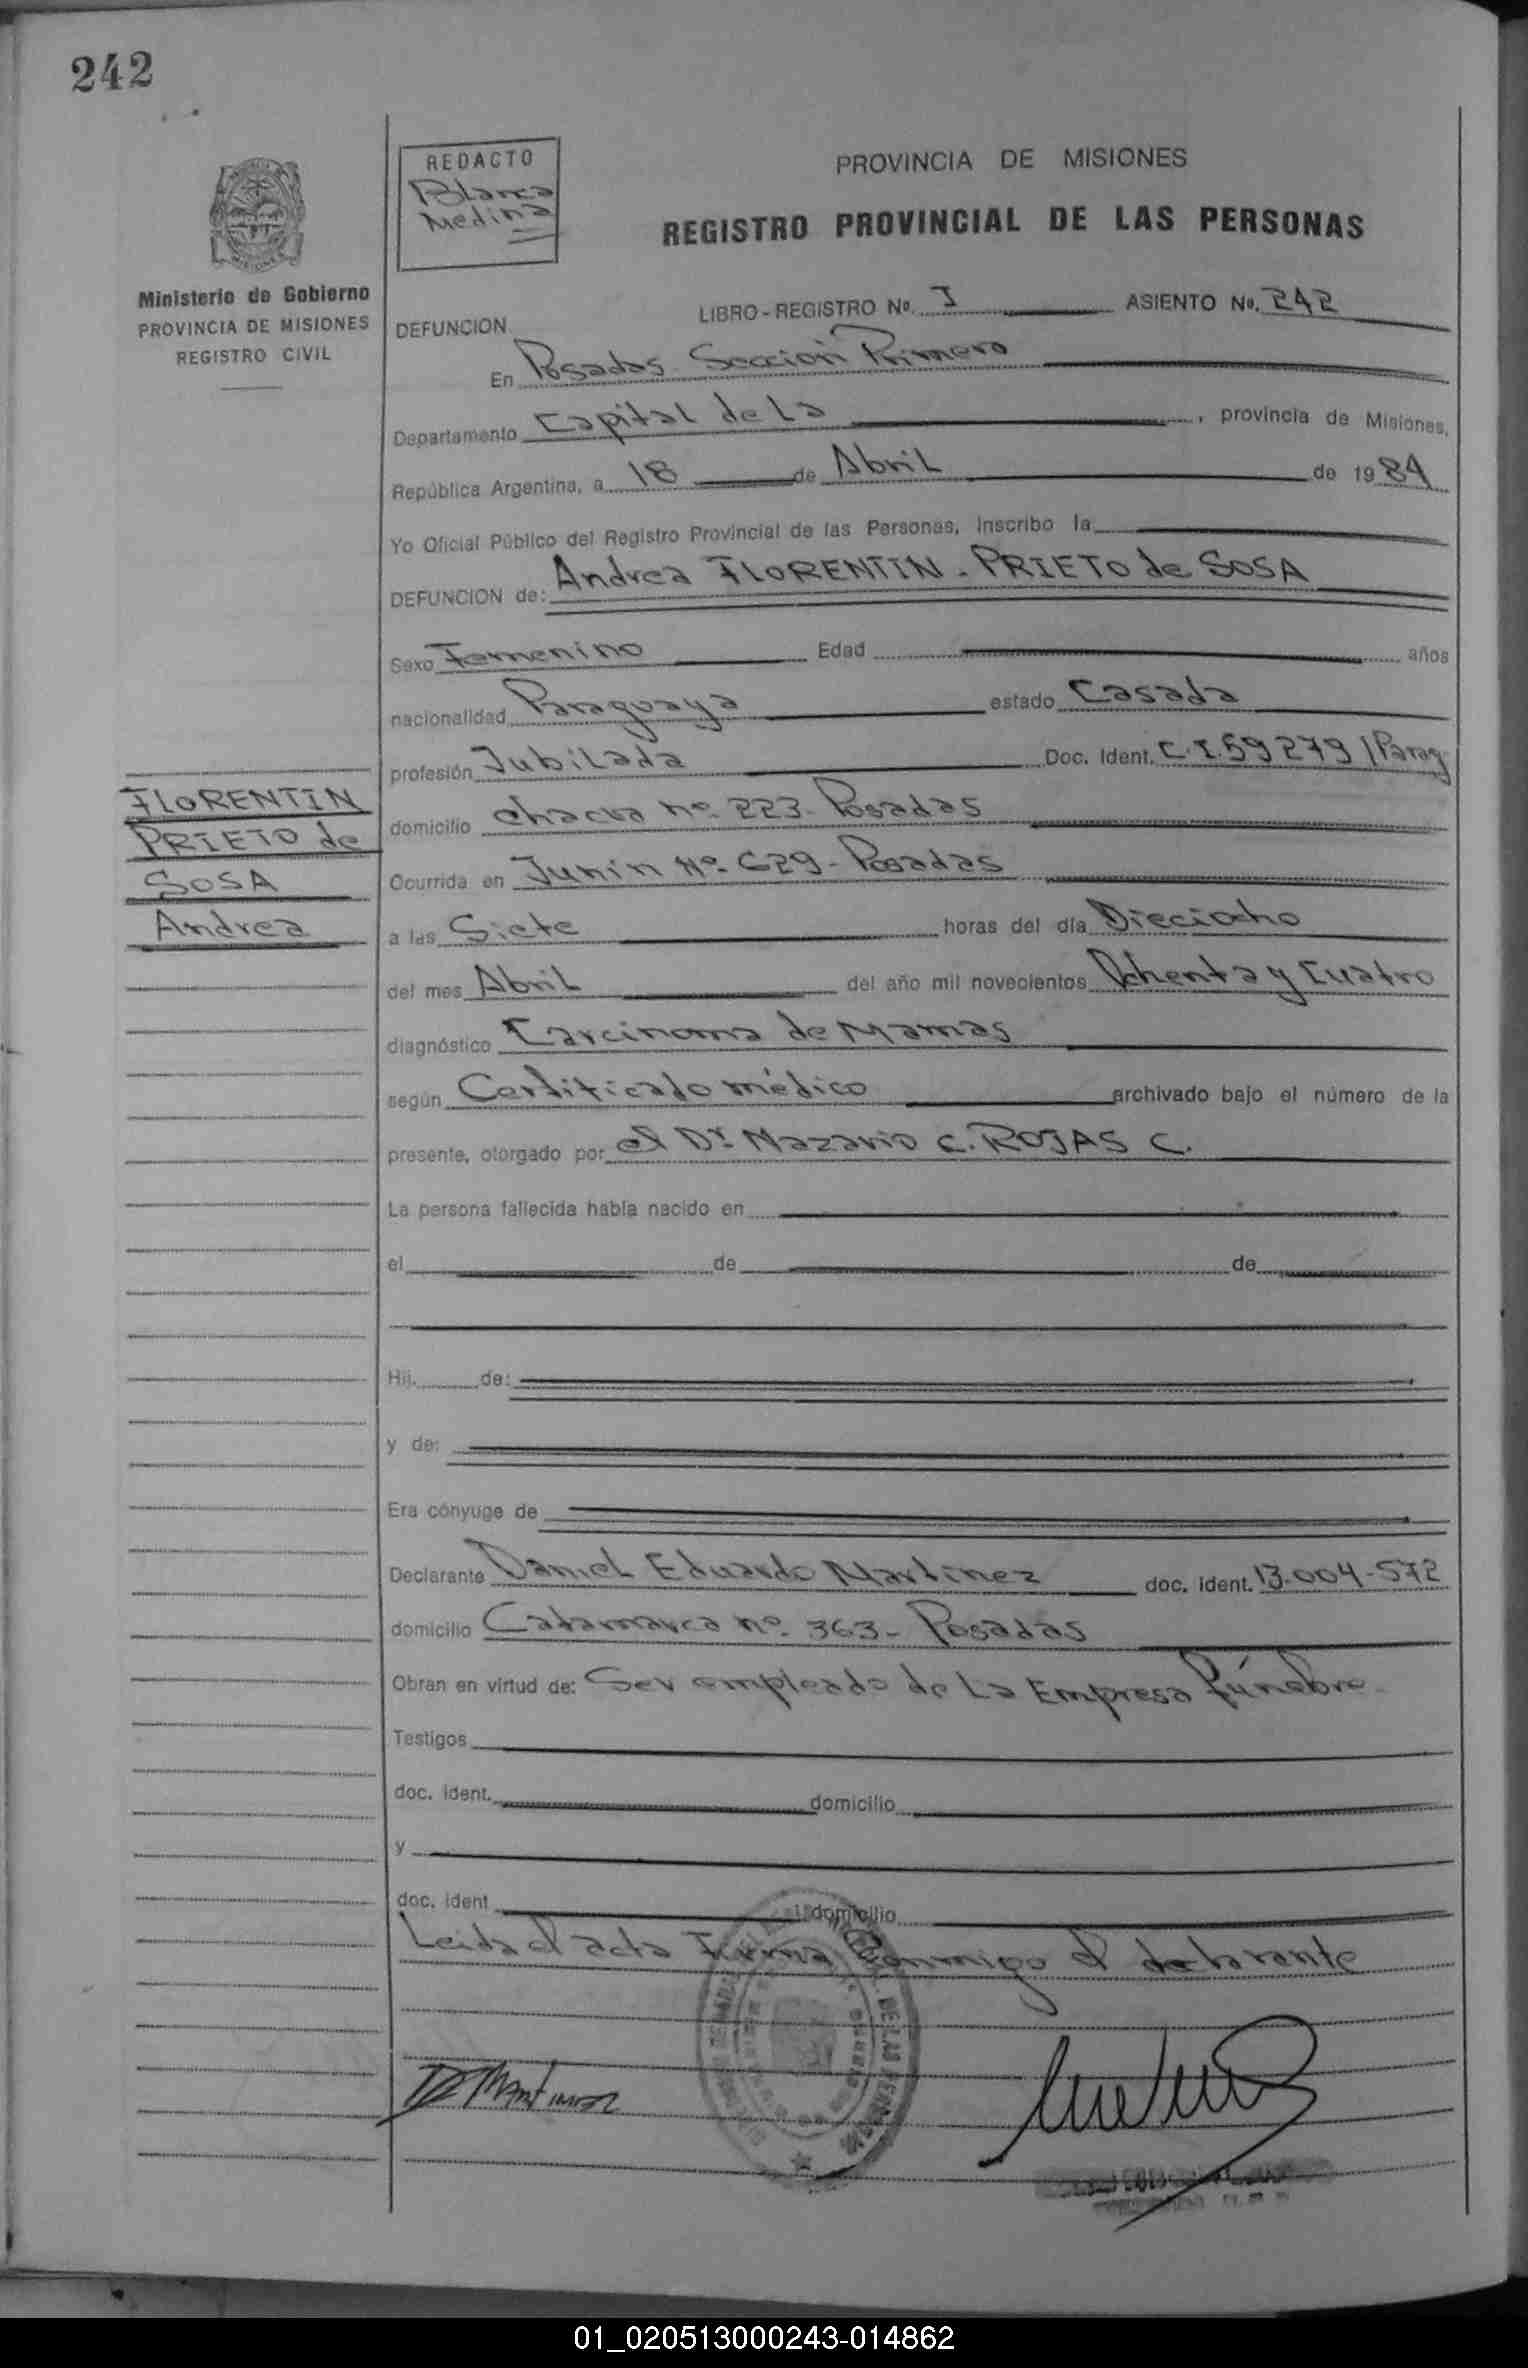 242
REDACTO
Blanca
Medina
PROVINCIA DE MISIONES
REGISTRO PROVINCIAL DE LAS PERSONAS
Ministerio de Gobierno
PROVINCIA DE MISIONES
REGISTRO CIVIL
LIBRO-REGISTRO No. I ASIENTO No. 242
DEFUNCION
En Posadas Sección Primera
Departamento Capital de La , provincia de Misiones,
República Argentina, a 18 de Abril de 1984
Yo Oficial Público del Registro Provincial de las Personas, inscribo la
DEFUNCION de: Andrea FLORENTIN - PRIETO de SOSA
Sexo Femenino Edad años
nacionalidad Paraguaya estado Casada
profesión Jubilada Doc. Ident. C.I. 59279 / Parag
FLORENTIN
PRIETO de
SOSA
Andrea
domicilio chacra nº 223 - Posadas
Ocurrida en Junin Nº 629 - Posadas
a las Siete horas del día Dieciocho
del mes Abril del año mil novecientos Ochenta y Cuatro
diagnóstico Carcinoma de Mamas
según Certificado médico archivado bajo el número de la
presente, otorgado por el Dr. Nazario C. ROJAS C.
La persona fallecida había nacido en
el de de
Hij. de:
y de:
Era cónyuge de
Declarante Daniel Eduardo Martinez doc. ident. 13.004-572
domicilio Catamarca nº 363 - Posadas
Obran en virtud de: Ser empleado de La Empresa fúnebre.
Testigos
doc. ident. domicilio
y
doc. ident domicilio
Leida el acta Firma Conmigo el declarante
DEMartinez
01_020513000243-014862